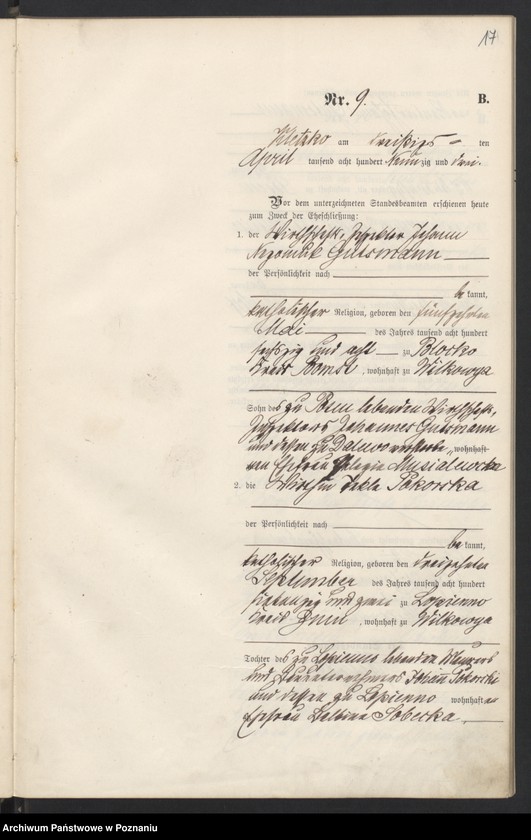 17
Nr. 9. B.
Kletzko am dreißigs ten
April tausend acht hundert Neunzig und drei.
Vor dem unterzeichneten Standesbeamten erschienen heute
zum Zweck der Eheschließung:
1. der Wirthschafts Inspektor Johann
Gutsmann
der Persönlichkeit nach
be kannt,
katholischer Religion, geboren den fünfzehnten
Mai des Jahres tausend acht hundert
sechszig und acht zu Blocko
Kreis Bomst, wohnhaft zu Wilkowya
Sohn des zu lebenden Wirthschafts
Inspektors Johannes Gutsmann
und dessen zu wohnhaft
en Ehefrau Musialowska
2. die Wirthin Tekla Pokorska
der Persönlichkeit nach
be kannt,
katholischer Religion, geboren den dreizehnten
September des Jahres tausend acht hundert
siebenzig und zwei zu Lopienno
Kreis Znin, wohnhaft zu Wilkowya
Tochter des zu Lopienno lebenden Maurers
und Bauunternehmers Johann Pokorski
und dessen zu Lopienno wohnhaft en
Ehefrau Balbina Sobecka.
Archiwum Państwowe w Poznaniu